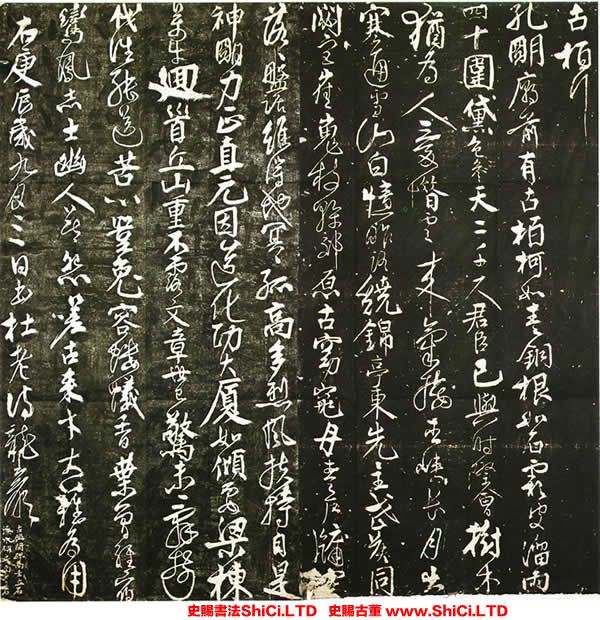 古柏行
孔明廟前有古柏柯如青銅根如石霜皮溜雨
四十圍黛色參天二千尺君臣已與時際會樹木
猶為人愛惜雲來氣接巫峽長月出
寒通雪山白憶昨路繞錦亭東先主武侯同
閟宮崔嵬枝幹郊原古窈窕丹青戶牖空
落落盤踞雖得地冥冥孤高多烈風扶持自是
神明力正直元因造化功大廈如傾要梁棟
萬牛迴首丘山重不露文章世已驚未辭翦
伐誰能送苦心豈免容螻蟻香葉曾經宿
鸞鳳志士幽人莫怨嗟古來才大難為用
右庚辰歲九月三日書杜老詩
史賜書法ShiCi.LTD 史賜古董 www.ShiCi.LTD